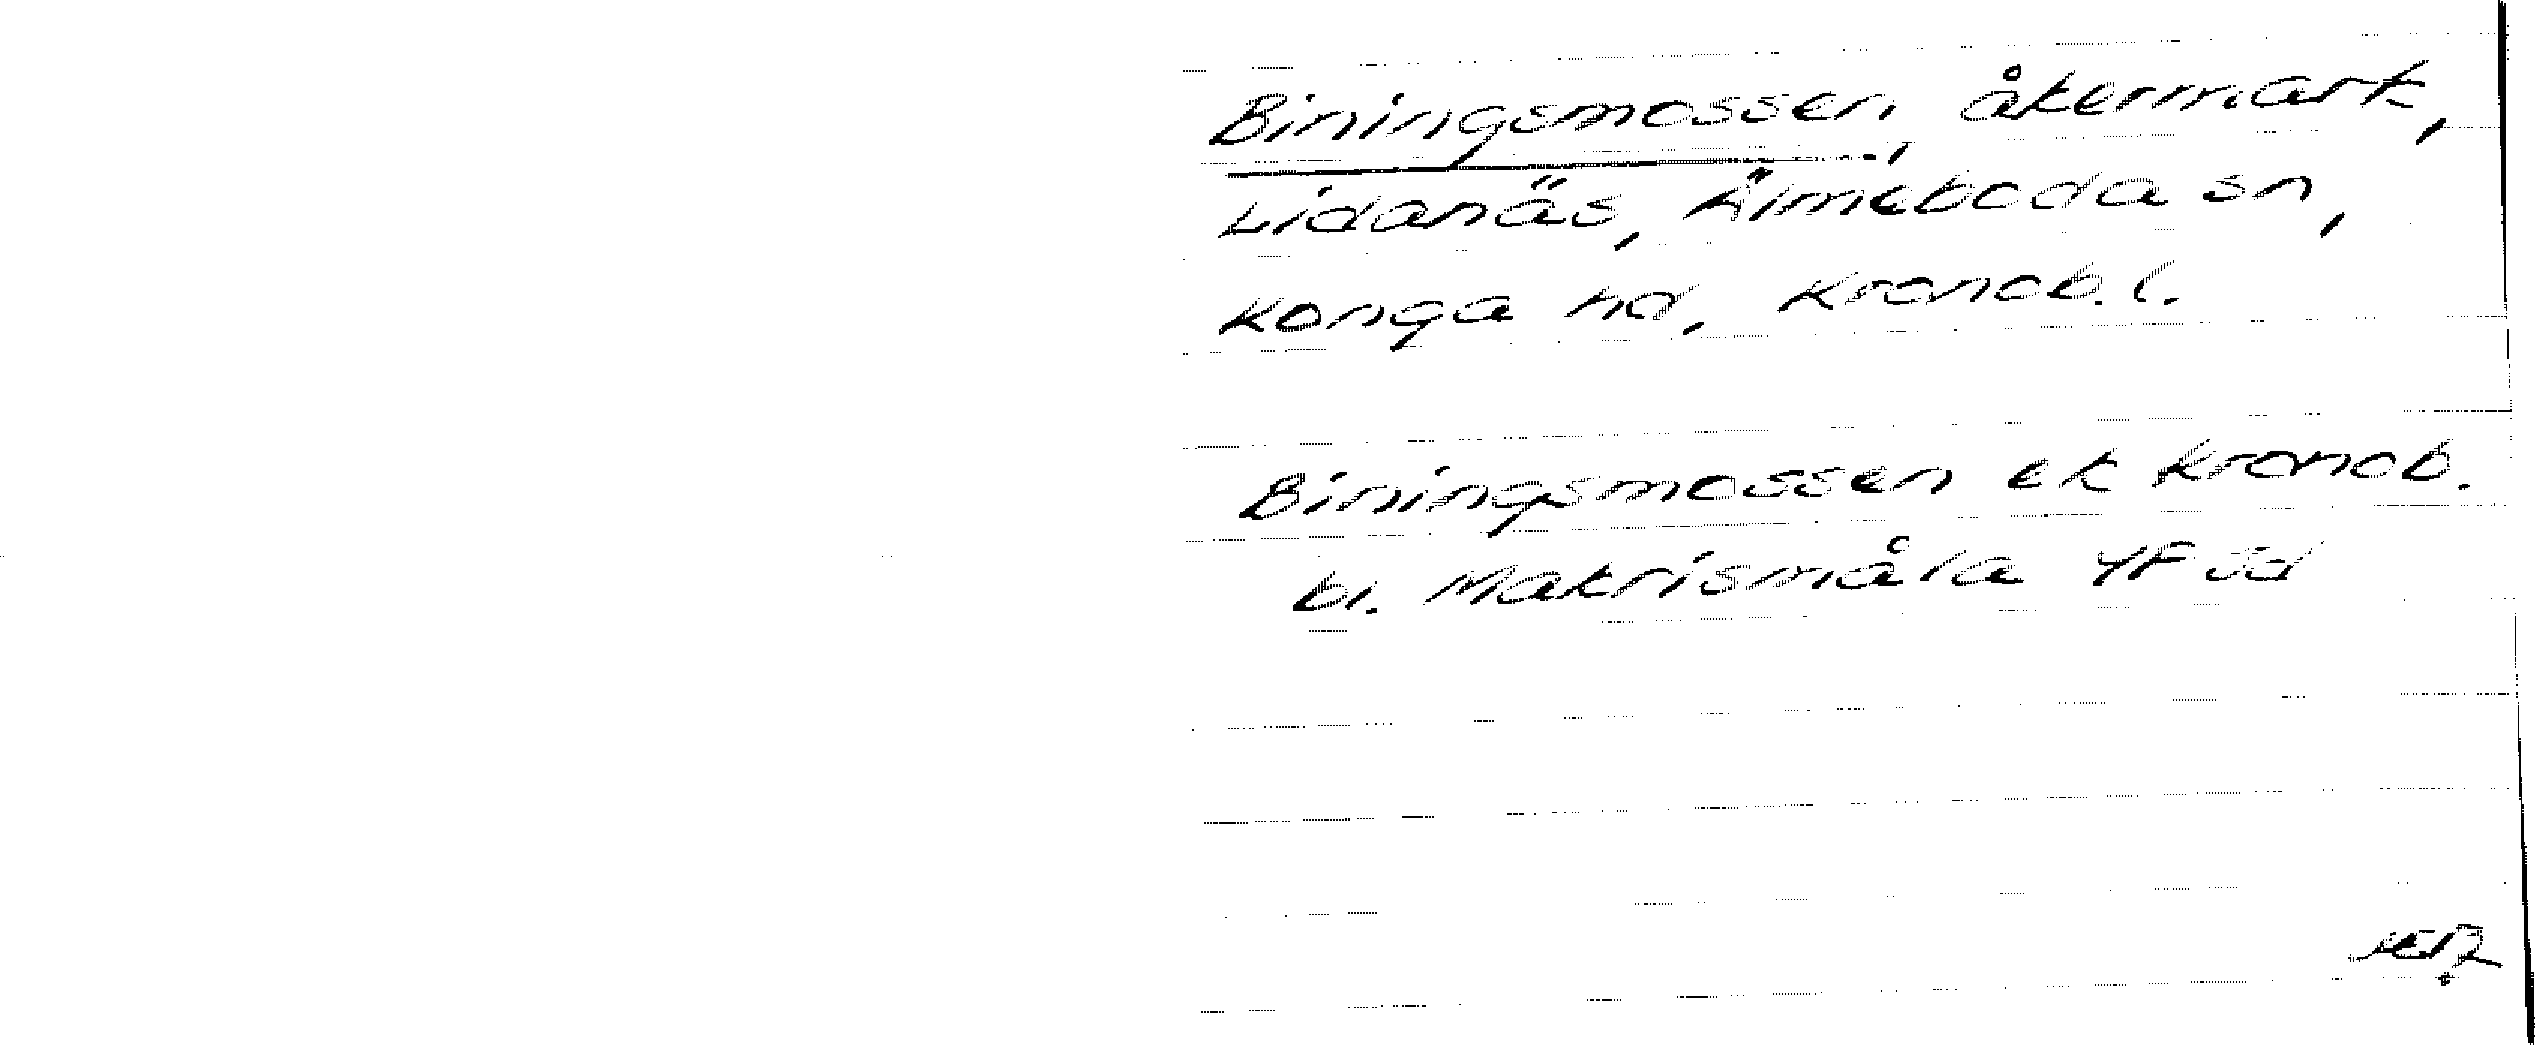 Biningsmossen, åkermark,
Lidanäs, Älmeboda sn,
Konga hd, Kronob. l.
Biningsmossen ek Kronob.
bl. Makrismåla 4F 3d